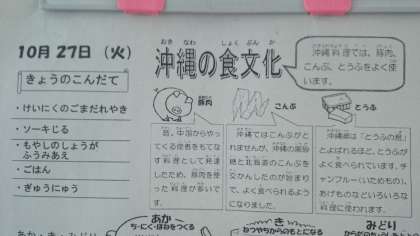 10月27日（火）
沖縄の食文化
おき なわ しょく ぶん か
沖縄料理では、豚肉、
こんぶ、とうふをよく使
います。
きょうのこんだて
・けいにくのごまだれやき
・ソーキじる
・もやしのしょうが
ふうみあえ
・ごはん
・ぎゅうにゅう
豚肉
昔、中国からやっ
てくる使者をもてな
す料理として発達
したため、豚肉を使
った料理が多いで
す。
こんぶ
沖縄ではこんぶがと
れませんが、沖縄の黒砂
糖と北海道のこんぶを
交かんしたのが始まり
で、よく食べられるように
なりました。
とうふ
沖縄県は「とうふの県」
とよばれるほど、とうふが
よく食べられています。チ
ャンプルー（いためもの）、
あげものなどいろいろな
料理に使われます。
あか・き・みどり
あか
ち・にく・ほねをつくる
き
ねつやちからのもとになる
みどり